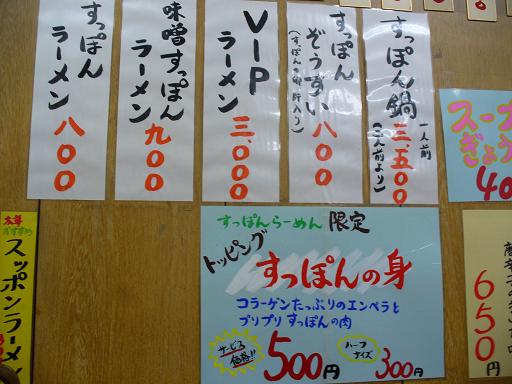 すっぽん鍋 一人前 三、五〇〇
(二人前より)
すっぽん
ぞうすい 八〇〇
(すっぽんの卵・肝入り)
VIP
ラーメン 三、〇〇〇
味噌すっぽん
ラーメン 九〇〇
すっぽん
ラーメン 八〇〇
すっぽんらーめん 限定
トッピング
すっぽんの身
コラーゲンたっぷりのエンペラと
プリプリすっぽんの肉
サービス
価格!!
500円
ハーフ
サイズ
300円
スープ
ぎょう
40
650円
本年
おすすめ
スッポンラーメン